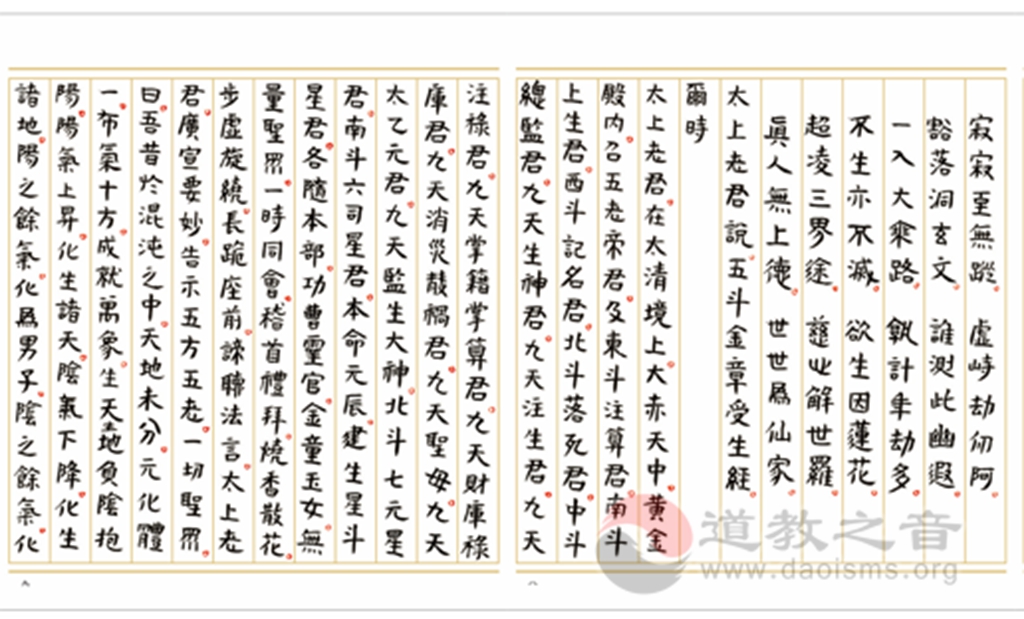 寂寂至無蹤 虛峙劫仞阿
豁落洞玄文 誰測此幽遐
一入大乘路 孰計年劫多
不生亦不滅 欲生因蓮花
超凌三界途 慈心解世羅
真人無上德 世世為仙家
太上老君說五斗金章受生經
爾時
太上老君在太清境上大赤天中黃金
殿內召五老帝君及東斗注算君南斗
上生君西斗記名君北斗落死君中斗
總監君九天生神君九天注生君九天
注祿君九天掌籍掌算君九天財庫祿
庫君九天消災散禍君九天聖母九天
太乙元君九天監生大神北斗七元星
君南斗六司星君本命元辰建生星斗
星君各隨本部功曹靈官金童玉女無
量聖眾一時同會稽首禮拜燒香散花
步虛旋繞長跪座前諦聽法言太上老
君廣宣要妙告示五方五老一切聖眾
曰吾昔於混沌之中天地未分元化體
一布氣十方成就萬象生天地負陰抱
陽陽氣上昇化生諸天陰氣下降化生
諸地陽之餘氣化為男子陰之餘氣化
道教之音
www.daoisms.org